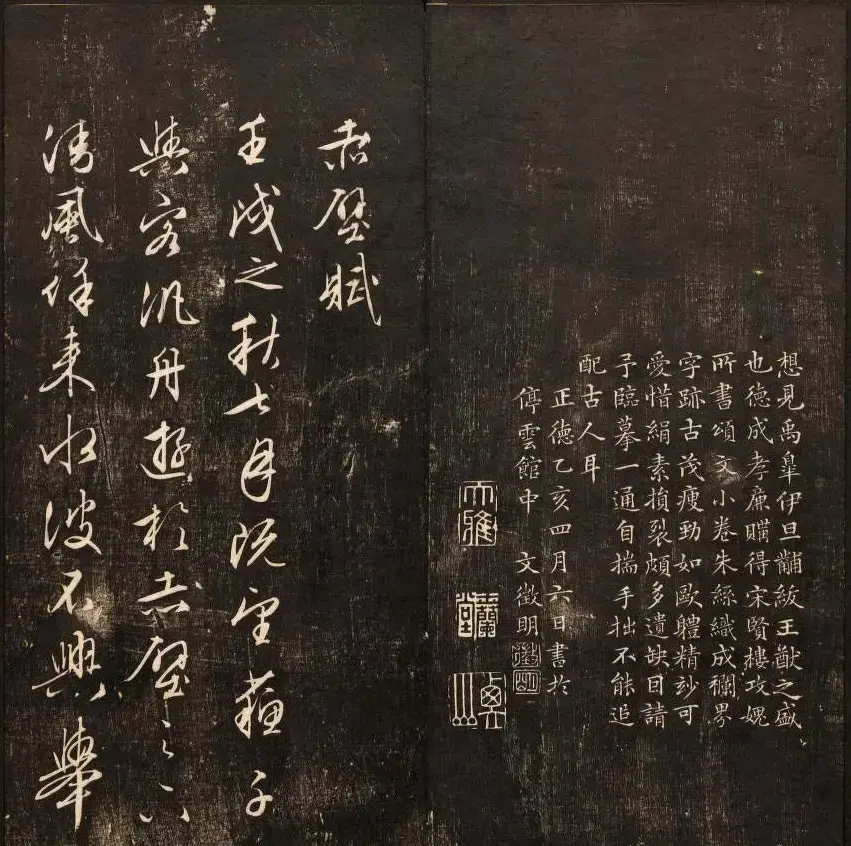 想見禹皋伊旦黼紱王猷之盛
也德成孝廉購得宋賢樓攻媿
所書頌文小卷朱絲織成襴界
字跡古茂瘦勁如歐體精玅可
愛惜絹素損裂頗多遺缺因請
予臨摹一通自揣手拙不能追
配古人耳
正德乙亥四月六日書於
停雲館中 文徵明
赤壁賦
壬戌之秋七月既望蘇子
與客汎舟遊於赤壁之下
清風徐來水波不興舉